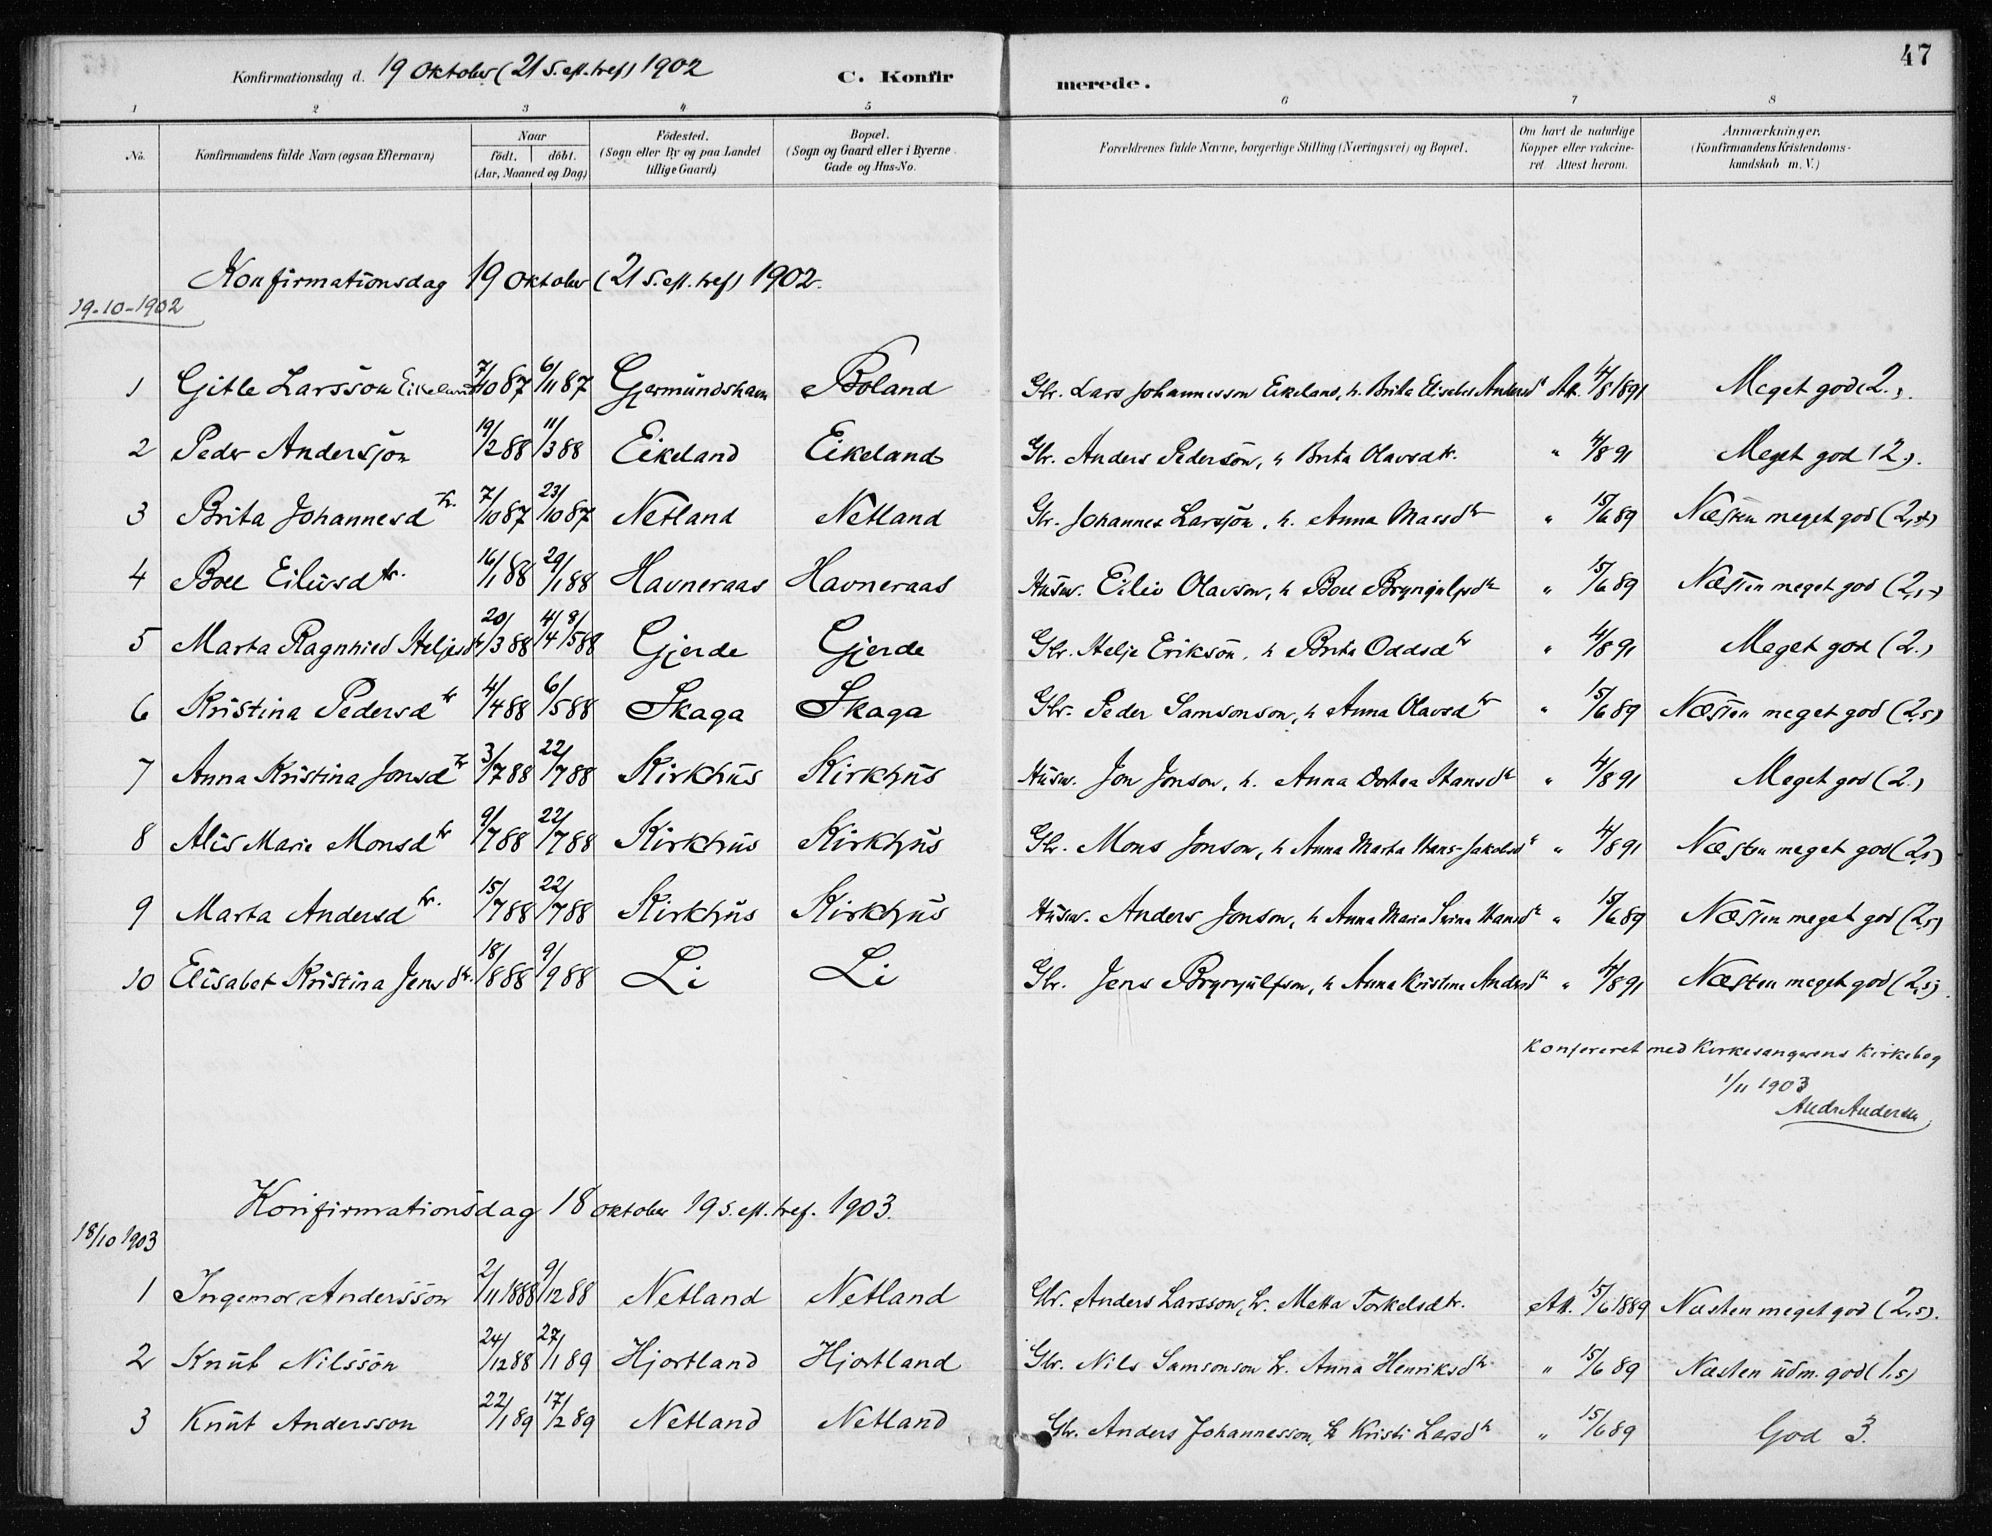 47
Konfirmationsdag d. 19 Oktober (21 S. eft. tref) 1902 C. Konfirmerede.
1 2 3 4 5 6 7 8
No. Konfirmandens fulde Navn (ogsaa Efternavn) Naar født. døbt. (Aar, Maaned og Dag) Fødested. (Sogn eller By og paa Landet tillige Gaard) Bopæl. (Sogn og Gaard eller i Byerne Gade og Hus-No. Forældrenes fulde Navne, borgerlige Stilling (Næringsvei) og Bopæl. Om havt de naturlige Kopper eller vakcineret Attest herom. Anmærkninger. (Konfirmandens Kristendomskundskab m. V.)
Konfirmationsdag 19 Oktober (21 S. eft. tref) 1902.
19-10-1902
1 Gitle Larsson Eikeland 7/10 87 6/11 87 Gjermundshavn Boland Gbr. Lars Johannesson Eikeland, h. Brita Elisabet Andersd Att. 4/8 1891 Meget god (2.).
2 Peder Andersson 19/2 88 11/3 88 Eikeland Eikeland Gbr. Anders Pedersøn, h Brita Olavsdtr. " 4/8 91 Meget god (2.).
3 Brita Johannesdtr. 7/10 87 23/10 87 Netland Netland Gbr. Johannes Larssøn, h. Anna Massdtr " 15/6 89 Næsten meget god (2,5)
4 Boel Eilivsdtr. 16/1 88 29/1 88 Havneraas Havneraas Husm. Eiliv Olavson, h Boel Brynjulfsdtr " 15/6 89 Næsten meget god (2,5)
5 Marta Ragnhild Heljesdtr 20/3 88 4/4 8/5 88 Gjerde Gjerde Gbr. Helje Eriksøn, h Brita Oddsdtr " 4/8 91 Meget god (2.)
6 Kristina Pedersdtr 4/4 88 6/5 88 Skaga Skaga Gbr. Peder Samsonson, h Anna Olavsdtr " 15/6 89 Næsten meget god (2,5)
7 Anna Kristina Jonsdtr 3/7 88 22/7 88 Kirkhus Kirkhus Husm. Jon Jonson, h. Anna Dortea Hansdtr " 4/8 91 Meget god (2.)
8 Alis Marie Monsdtr 9/7 88 22/7 88 Kirkhus Kirkhus Gbr. Mons Jonson, h Anna Marta Hans-Jakobsd " 4/8 91 Næsten meget god (2,5)
9 Marta Andersdtr. 15/7 88 22/7 88 Kirkhus Kirkhus Husm. Anders Jonson, h Anna Maria Hansdtr " 15/6 89 Næsten meget god (2,5)
10 Elisabet Kristina Jensdtr. 18/8 88 9/9 88 Li Li Gbr. Jens Brynjulfson, h Anna Kristina Andersd " 4/8 91 Næsten meget god (2,5).
Konfereret med Kirkesangerens Kirkebog
1/11 1903
Andr Andersen
Konfirmationsdag 18 Oktober 19 S. eft. tref. 1903.
18/10 1903
1 Ingemor Andersson 2/11 1888 9/12 88 Netland Netland Gbr. Anders Larsson, h. Metta Torkelsdtr. Att. 15/6 1889 Næsten meget god (2,5).
2 Knut Nilsson 24/12 88 27/1 89 Hjortland Hjortland Gbr. Nils Samsonson h. Anna Henriksdtr " 15/6 89 Næsten udm. god (1,5)
3 Knut Andersson 22/1 89 17/2 89 Netland Netland Gbr. Anders Johannesson, h Kristi Larsdtr " 15/6 89 God 3.